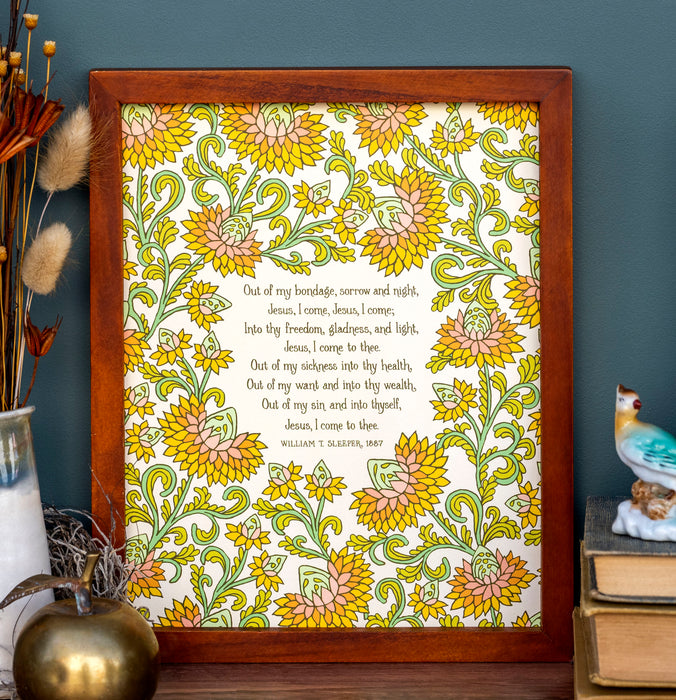 Out of my bondage, sorrow and night,
Jesus, I come, Jesus, I come;
Into thy freedom, gladness, and light,
Jesus, I come to thee.
Out of my sickness into thy health,
Out of my want and into thy wealth,
Out of my sin, and into thyself,
Jesus, I come to thee.
WILLIAM T. SLEEPER, 1887